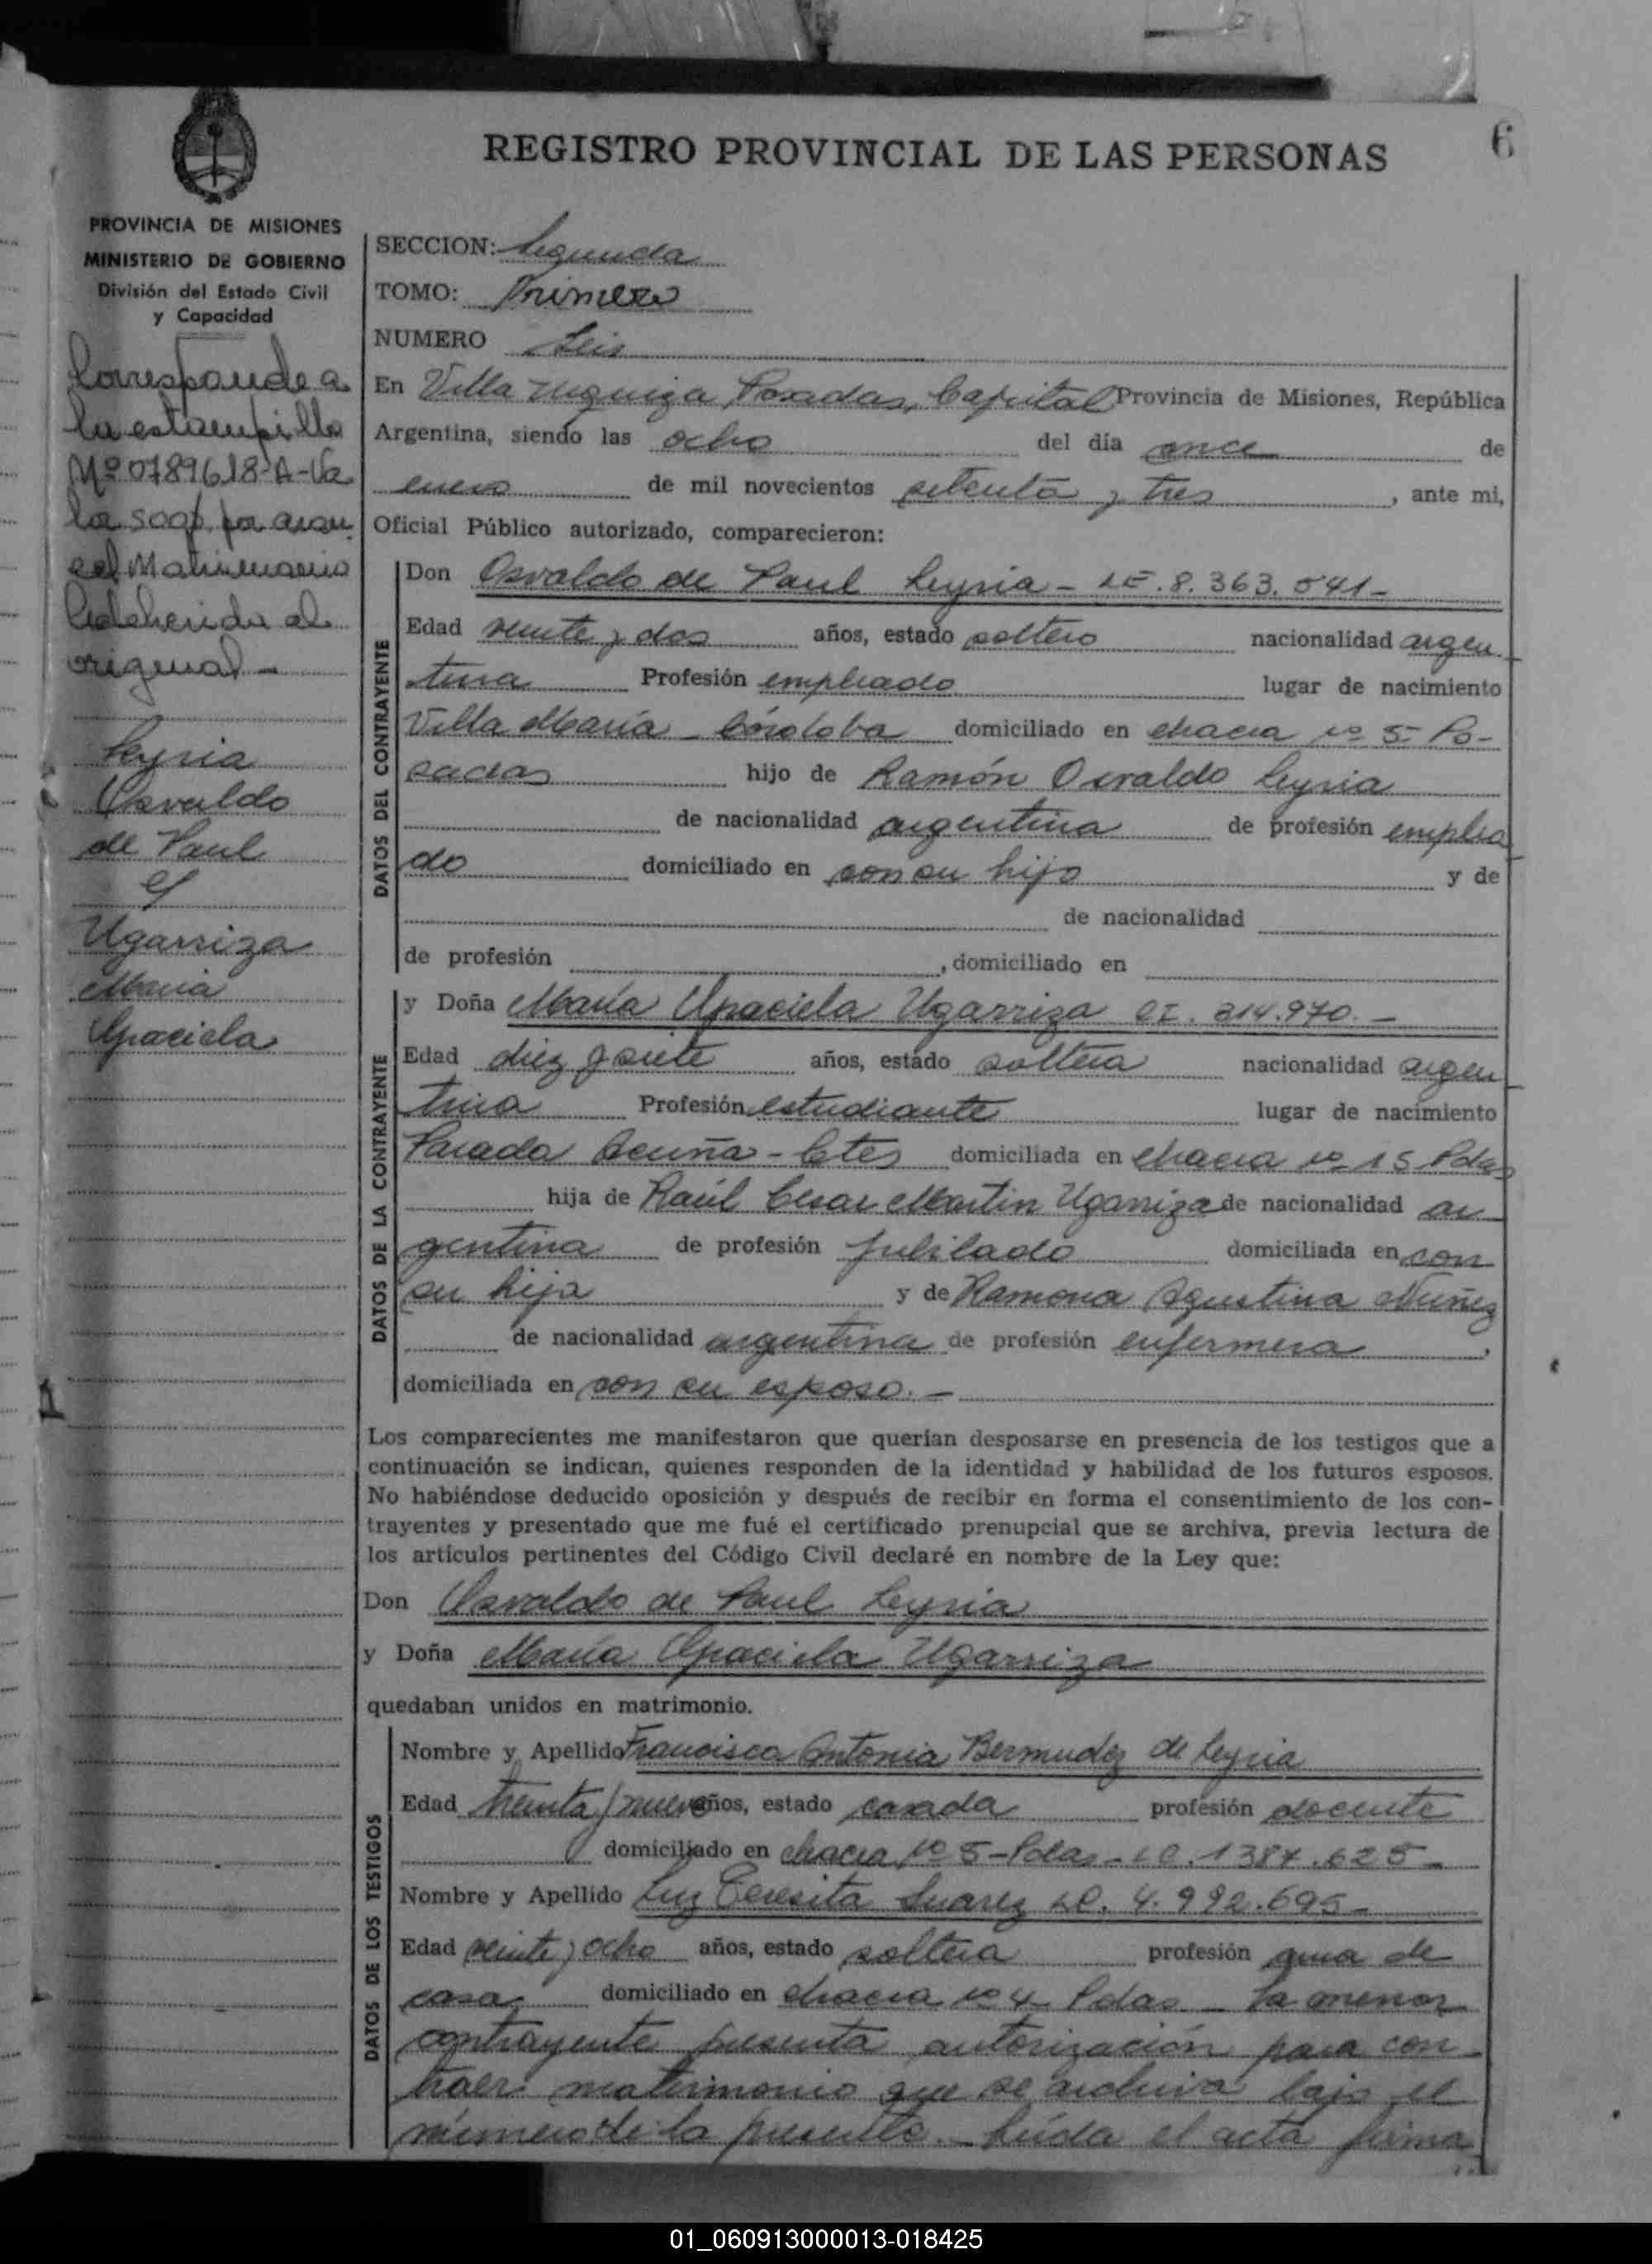 6
REGISTRO PROVINCIAL DE LAS PERSONAS
PROVINCIA DE MISIONES
MINISTERIO DE GOBIERNO
División del Estado Civil
y Capacidad
Corresponde a
la estampilla
Nº 0789618-A-
la
el Matrimonio
adherida al
original -
Leyria
Osvaldo
de Paul
y
Ugarriza
María
Graciela
SECCION: Segunda
TOMO: Primero
NUMERO Seis
En Villa Urquiza, Posadas, Capital Provincia de Misiones, República
Argentina, siendo las ocho del día once de
enero de mil novecientos setenta y tres, ante mi,
Oficial Público autorizado, comparecieron:
DATOS DEL CONTRAYENTE
Don Osvaldo de Paul Leyria - LE. 8.363.541-
Edad veinte y dos años, estado soltero nacionalidad argen
tina Profesión empleado lugar de nacimiento
Villa María - Córdoba domiciliado en chacra nº 5- Po-
sadas hijo de Ramón Osvaldo Leyria
de nacionalidad argentina de profesión emplea
do domiciliado en con su hijo y de
de nacionalidad
de profesión , domiciliado en
DATOS DE LA CONTRAYENTE
y Doña María Graciela Ugarriza CI. 314.970. -
Edad diez y siete años, estado soltera nacionalidad argen
tina Profesión estudiante lugar de nacimiento
Parada Acuña - Ctes domiciliada en chacra nº 15 Pdas
hija de Raúl Cesar Martin Ugarriza de nacionalidad ar
gentina de profesión jubilado domiciliada en con
su hija y de Ramona Agustina Nuñez
de nacionalidad argentina de profesión enfermera,
domiciliada en con su esposo. -
Los comparecientes me manifestaron que querían desposarse en presencia de los testigos que a
continuación se indican, quienes responden de la identidad y habilidad de los futuros esposos.
No habiéndose deducido oposición y después de recibir en forma el consentimiento de los con-
trayentes y presentado que me fué el certificado prenupcial que se archiva, previa lectura de
los artículos pertinentes del Código Civil declaré en nombre de la Ley que:
Don Osvaldo de Paul Leyria
y Doña María Graciela Ugarriza
quedaban unidos en matrimonio.
DATOS DE LOS TESTIGOS
Nombre y Apellido Francisca Antonia Bermudez de Leyria
Edad treinta y nueve años, estado casada profesión docente
domiciliado en chacra nº 5-Pdas - LC. 1387.625-
Nombre y Apellido Luz Teresita Suarez LC. 4.992.695-
Edad veinte y ocho años, estado soltera profesión ama de
casa, domiciliado en chacra nº 4 Pdas. - La menor
contrayente presenta autorización para con-
traer matrimonio que se archiva bajo el
número de la presente. - Leída el acta firma
01_060913000013-018425